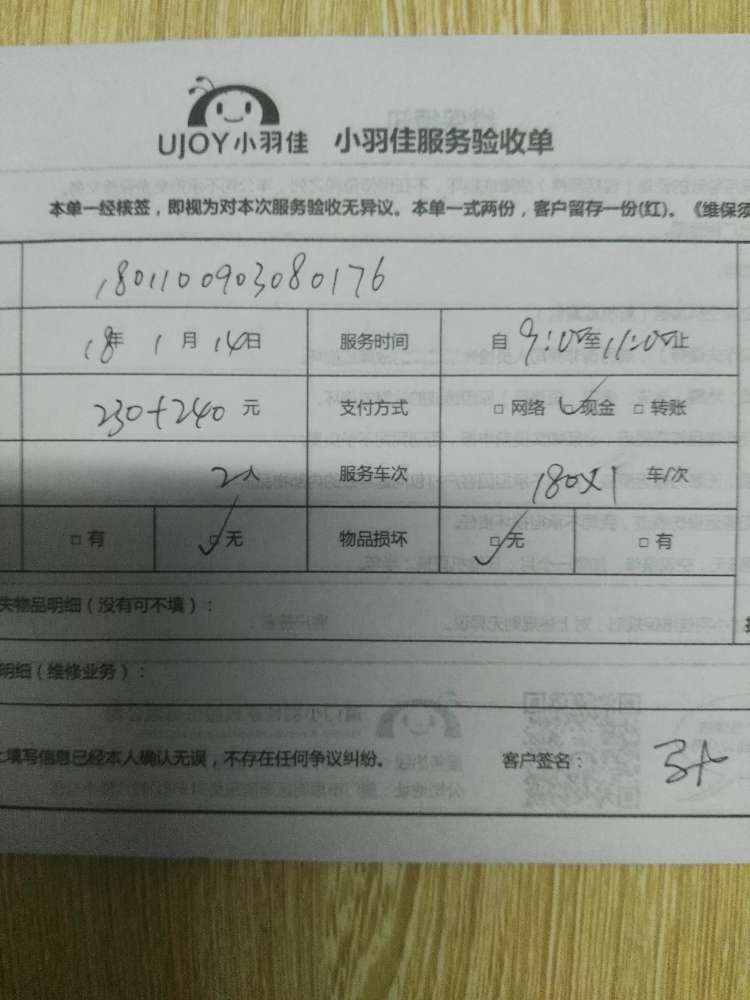 UJOY小羽佳 小羽佳服务验收单
本单一经核签，即视为对本次服务验收无异议。本单一式两份，客户留存一份(红)。《维保须
1801100903080176
18年 1 月 14日 服务时间 自 9:00至11:00止
230+240 元 支付方式 □ 网络 ✓现金 □ 转账
2人 服务车次 180×1 车/次
□ 有 ✓□ 无 物品损坏 ✓□ 无 □ 有
失物品明细（没有可不填）：
明细（维修业务）：
上填写信息已经本人确认无误，不存在任何争议纠纷。 客户签名：